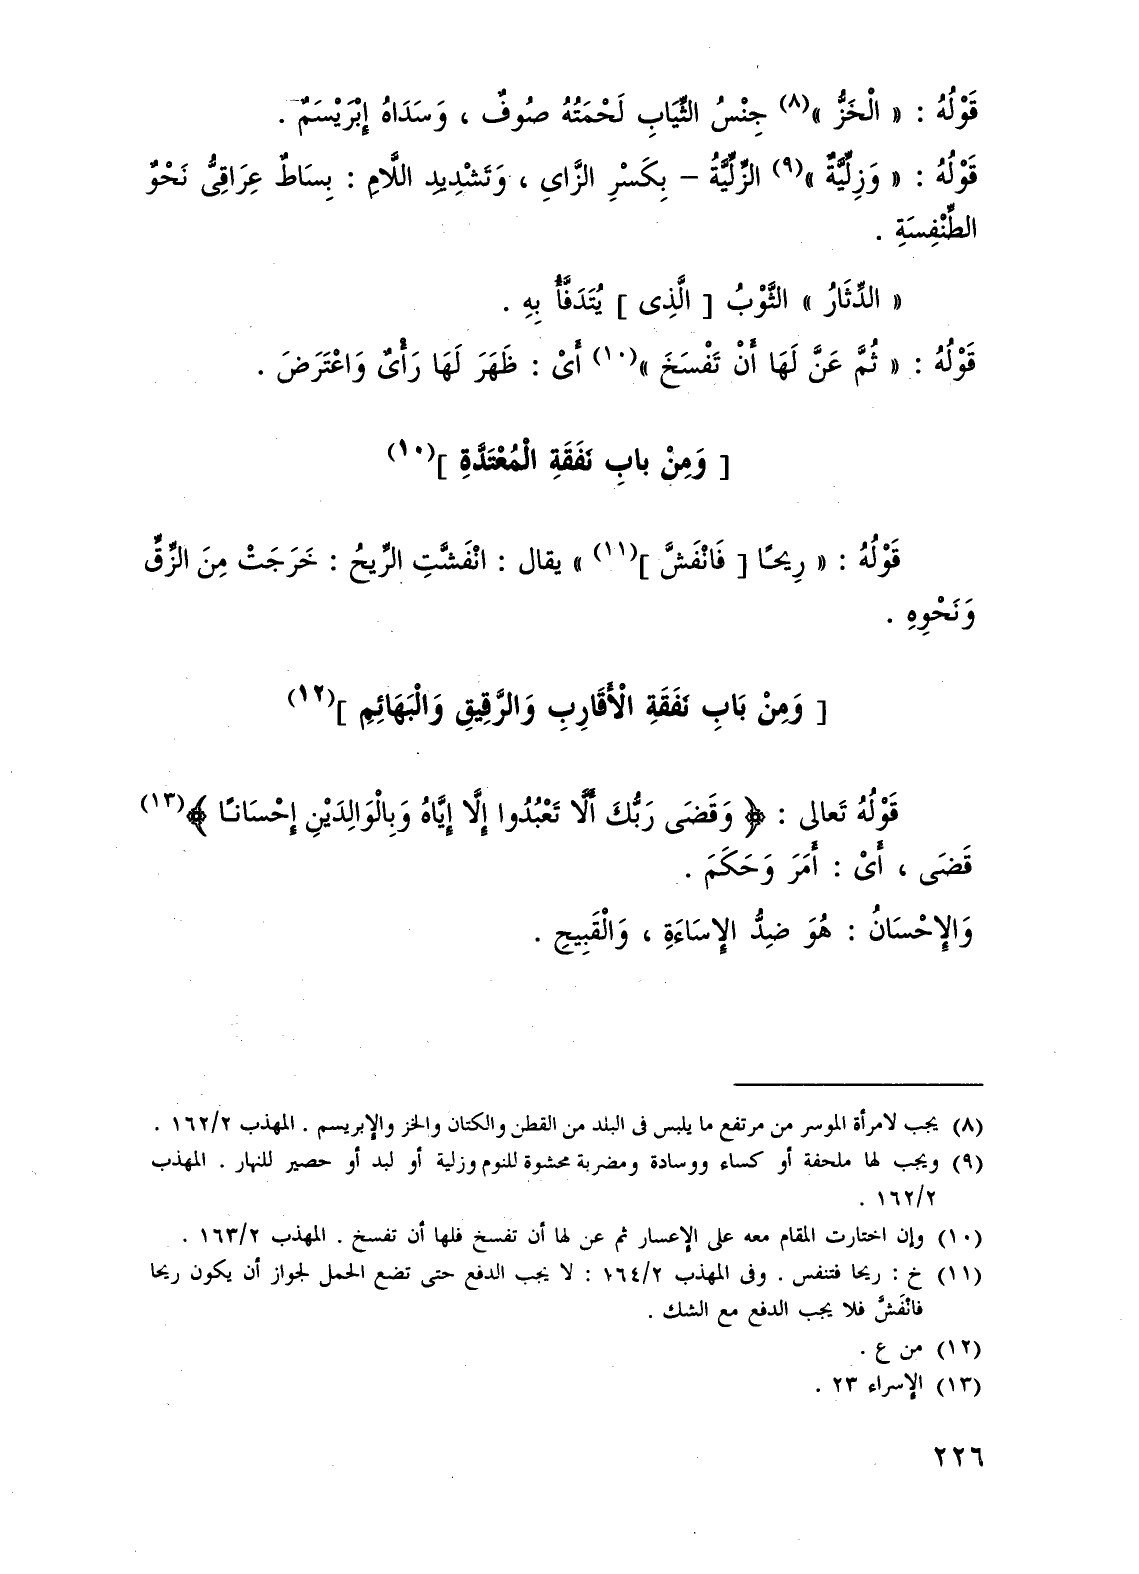 قَوْلُهُ : « الْخَزُّ »(٨) جِنْسُ الثِّيَابِ لَحْمَتُهُ صُوفٌ ، وَسَدَاهُ إِبْرَيْسَمٌ .
قَوْلُهُ : « وَزِلِّيَّةٌ »(٩) الزِّلِّيَّةُ – بِكَسْرِ الزَّاىِ ، وَتَشْدِيدِ اللَّامِ : بِسَاطٌ عِرَاقِىٌّ نَحْوُ
الطِّنْفِسَةِ .
« الدِّثَارُ » الثَّوْبُ [ الَّذِى ] يُتَدَفَّأُ بِهِ .
قَوْلُهُ : « ثُمَّ عَنَّ لَهَا أَنْ تَفْسَخَ »(١٠) أَىْ : ظَهَرَ لَهَا رَأْىٌ وَاعْتَرَضَ .
[ وَمِنْ بابِ نَفَقَةِ الْمُعْتَدَّةِ ](١٠)
قَوْلُهُ : « رِيحًا [ فَانْفَشَّ ](١١) » يقال : انْفَشَّتِ الرِّيحُ : خَرَجَتْ مِنَ الزِّقِّ
وَنَحْوِهِ .
[ وَمِنْ بَابِ نَفَقَةِ الْأَقَارِبِ وَالرَّقِيقِ وَالْبَهَائِمِ ](١٢)
قَوْلُهُ تَعالى : ﴿ وَقَضَى رَبُّكَ أَلَّا تَعْبُدُوا إِلَّا إِيَّاهُ وَبِالْوَالِدَيْنِ إِحْسَانًا ﴾(١٣)
قَضَى ، أَىْ : أَمَرَ وَحَكَمَ .
وَالإِحْسَانُ : هُوَ ضِدُّ الإِسَاءَةِ ، وَالْقَبِيحِ .
(٨) يجب لامرأة الموسر من مرتفع ما يلبس فى البلد من القطن والكتان والخز والإبريسم . المهذب ١٦٢/٢ .
(٩) ويجب لها ملحفة أو كساء ووسادة ومضربة محشوة للنوم وزلية أو لبد أو حصير للنهار . المهذب
١٦٢/٢ .
(١٠) وإن اختارت المقام معه على الإعسار ثم عن لها أن تفسخ فلها أن تفسخ . المهذب ١٦٣/٢ .
(١١) خ : ريحا فتنفس . وفى المهذب ١٦٤/٢ : لا يجب الدفع حتى تضع الحمل لجواز أن يكون ريحا
فانْفَشَّ فلا يجب الدفع مع الشك .
(١٢) من ع .
(١٣) الإسراء ٢٣ .
٢٢٦